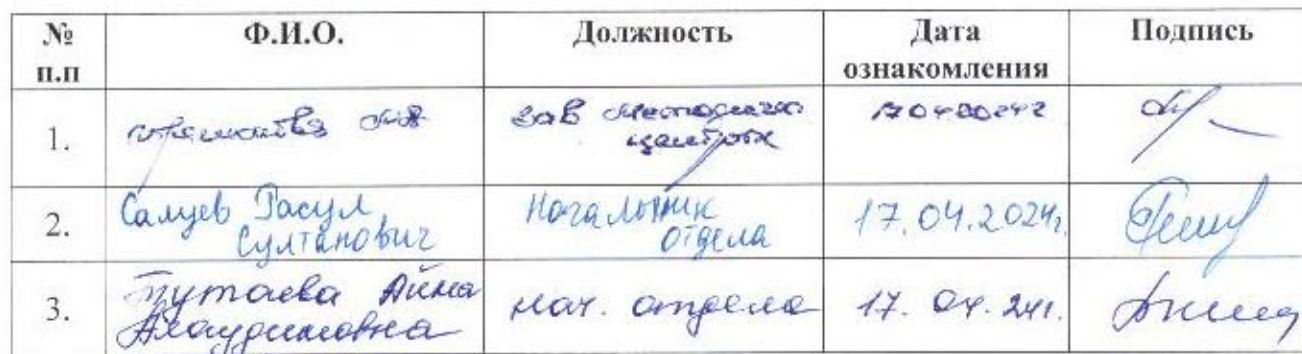 № п.п Ф.И.О. Должность Дата ознакомления Подпись
1. зав методическ центром 17042024г
2. Салуев Расул Султанович Начальник отдела 17.04.2024г.
3. Тутаева Айна Алаудиновна нач. отдела 17.04.24г.